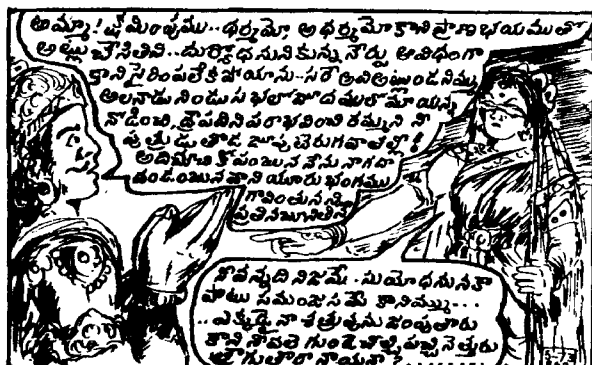 అమ్మా! క్షమింపుము.. ధర్మమో, అధర్మమోకాని ప్రాణభయముతో
అట్లు చేసితిని.. దుర్యోధనునికున్న నేర్పు ఆవిధంగా
కాని సైరింపలేకపోయాను.. సరే అవి అట్లుండనిమ్ము
అలనాడు నిండు సభలో మాయన్న
నోడించి, ద్రౌపదిని పరాభవించి రమ్మని నీ
పుత్రుడు తొడ
అదిచూచి కోపంబున నేను నా గదా
దండంబున వాని యూరు భంగము
గావింతునన్న
ప్రతినబూనితిని
నీవన్నది నిజమే. సుయోధనునకా
పాటు సమంజసమే కానిమ్ము...
..ఎక్కడైనా శత్రువును జంపుతారు
కాని నీవలె గుండె చీల్చి పచ్చినెత్తురు
త్రాగుతారా నాయనా?.......